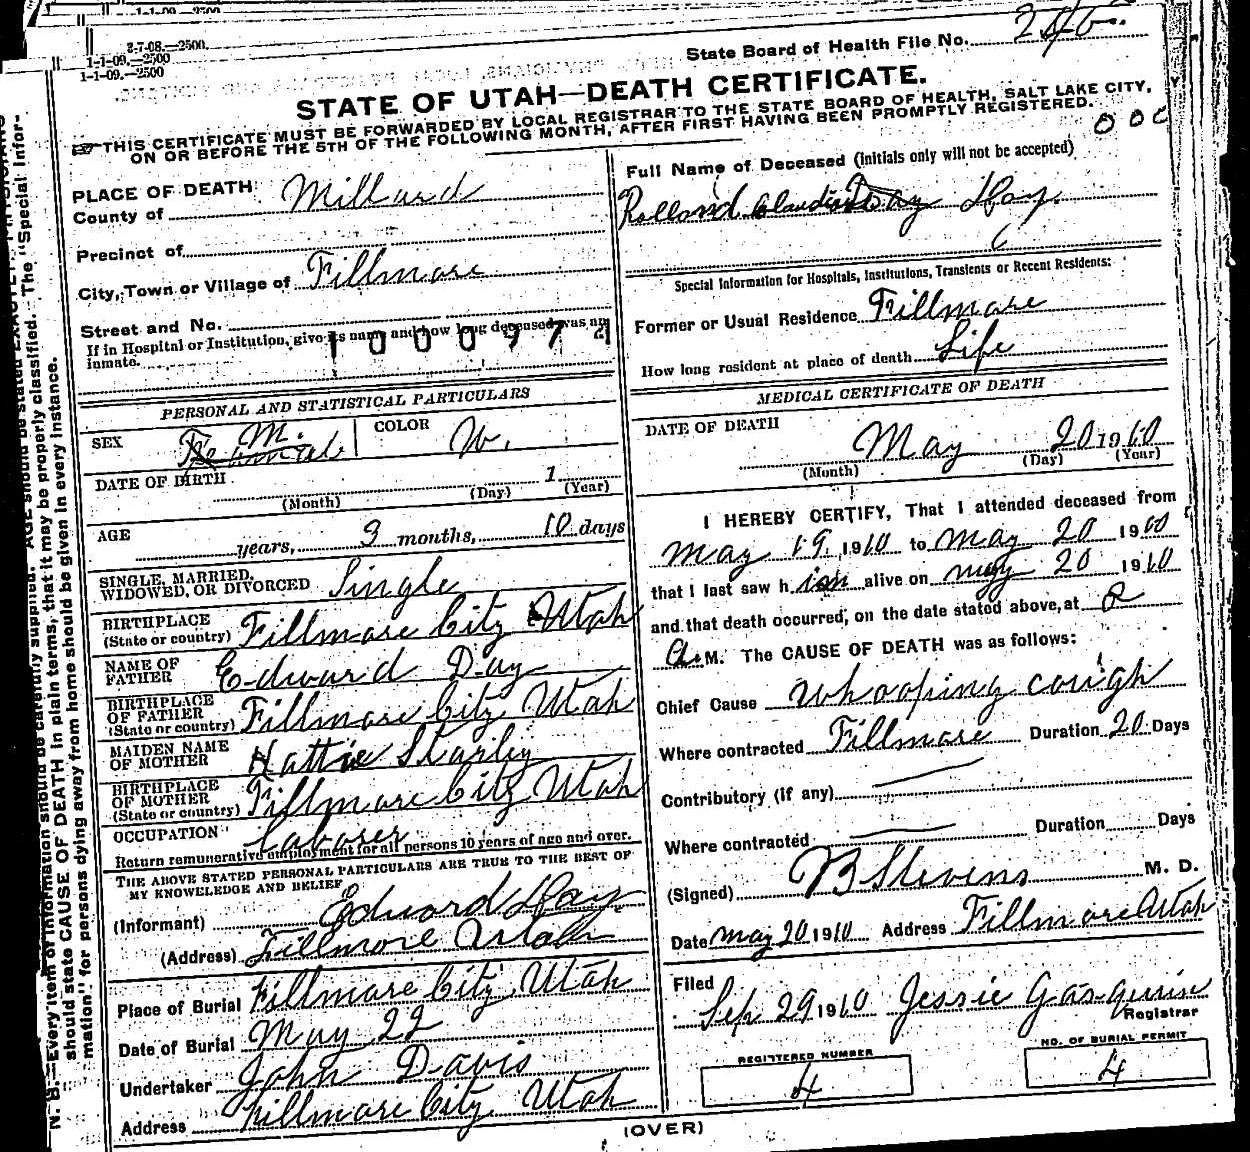 1-1-09 2500
3-7-08.—2500.
1-1-09.—2500
1-1-09.—2500
State Board of Health File No. 246
STATE OF UTAH—DEATH CERTIFICATE.
THIS CERTIFICATE MUST BE FORWARDED BY LOCAL REGISTRAR TO THE STATE BOARD OF HEALTH, SALT LAKE CITY,
ON OR BEFORE THE 5TH OF THE FOLLOWING MONTH, AFTER FIRST HAVING BEEN PROMPTLY REGISTERED.
PLACE OF DEATH:
County of Millard
Precinct of
City, Town or Village of Fillmore
Street and No.
If in Hospital or Institution, give its name and how long deceased was an
inmate.
1000974
PERSONAL AND STATISTICAL PARTICULARS
SEX M. COLOR W.
DATE OF BIRTH 1
(Month) (Day) (Year)
AGE years, 3 months, 10 days
SINGLE, MARRIED,
WIDOWED, OR DIVORCED Single
BIRTHPLACE
(State or country) Fillmore City Utah
NAME OF
FATHER Edward Day
BIRTHPLACE
OF FATHER
(State or country) Fillmore City Utah
MAIDEN NAME
OF MOTHER Hattie Starley
BIRTHPLACE
OF MOTHER
(State or country) Fillmore City Utah
OCCUPATION Laborer
Return remunerative employment for all persons 10 years of age and over.
THE ABOVE STATED PERSONAL PARTICULARS ARE TRUE TO THE BEST OF
MY KNOWELEDGE AND BELIEF
(Informant) Edward Day
(Address) Fillmore Utah
Place of Burial Fillmore City Utah
Date of Burial May 22
Undertaker John Davis
Address Fillmore City Utah
Full Name of Deceased (Initials only will not be accepted)
Rolland Claudius Day Day.
Special Information for Hospitals, Institutions, Transients or Recent Residents:
Former or Usual Residence Fillmore
How long resident at place of death Life
MEDICAL CERTIFICATE OF DEATH
DATE OF DEATH
May 20 1910
(Month) (Day) (Year)
I HEREBY CERTIFY, That I attended deceased from
May 19 1910 to May 20 1910
that I last saw him alive on May 20 1910
and that death occurred, on the date stated above, at
M. The CAUSE OF DEATH was as follows:
Chief Cause Whooping cough
Where contracted Fillmore Duration 20 Days
Contributory (if any)
Where contracted Duration Days
(Signed) Stevens M. D.
Date May 20 1910 Address Fillmore Utah
Filed
Sep 29 1910 Jessie Gasquine
Registrar
REGISTERED NUMBER
4
NO. OF BURIAL PERMIT
4
(OVER)
N. B.—Every item of information should be carefully supplied. AGE should be stated EXACTLY. PHYSICIANS
should state CAUSE OF DEATH in plain terms, that it may be properly classified. The "Special Infor-
mation" for persons dying away from home should be given in every instance.